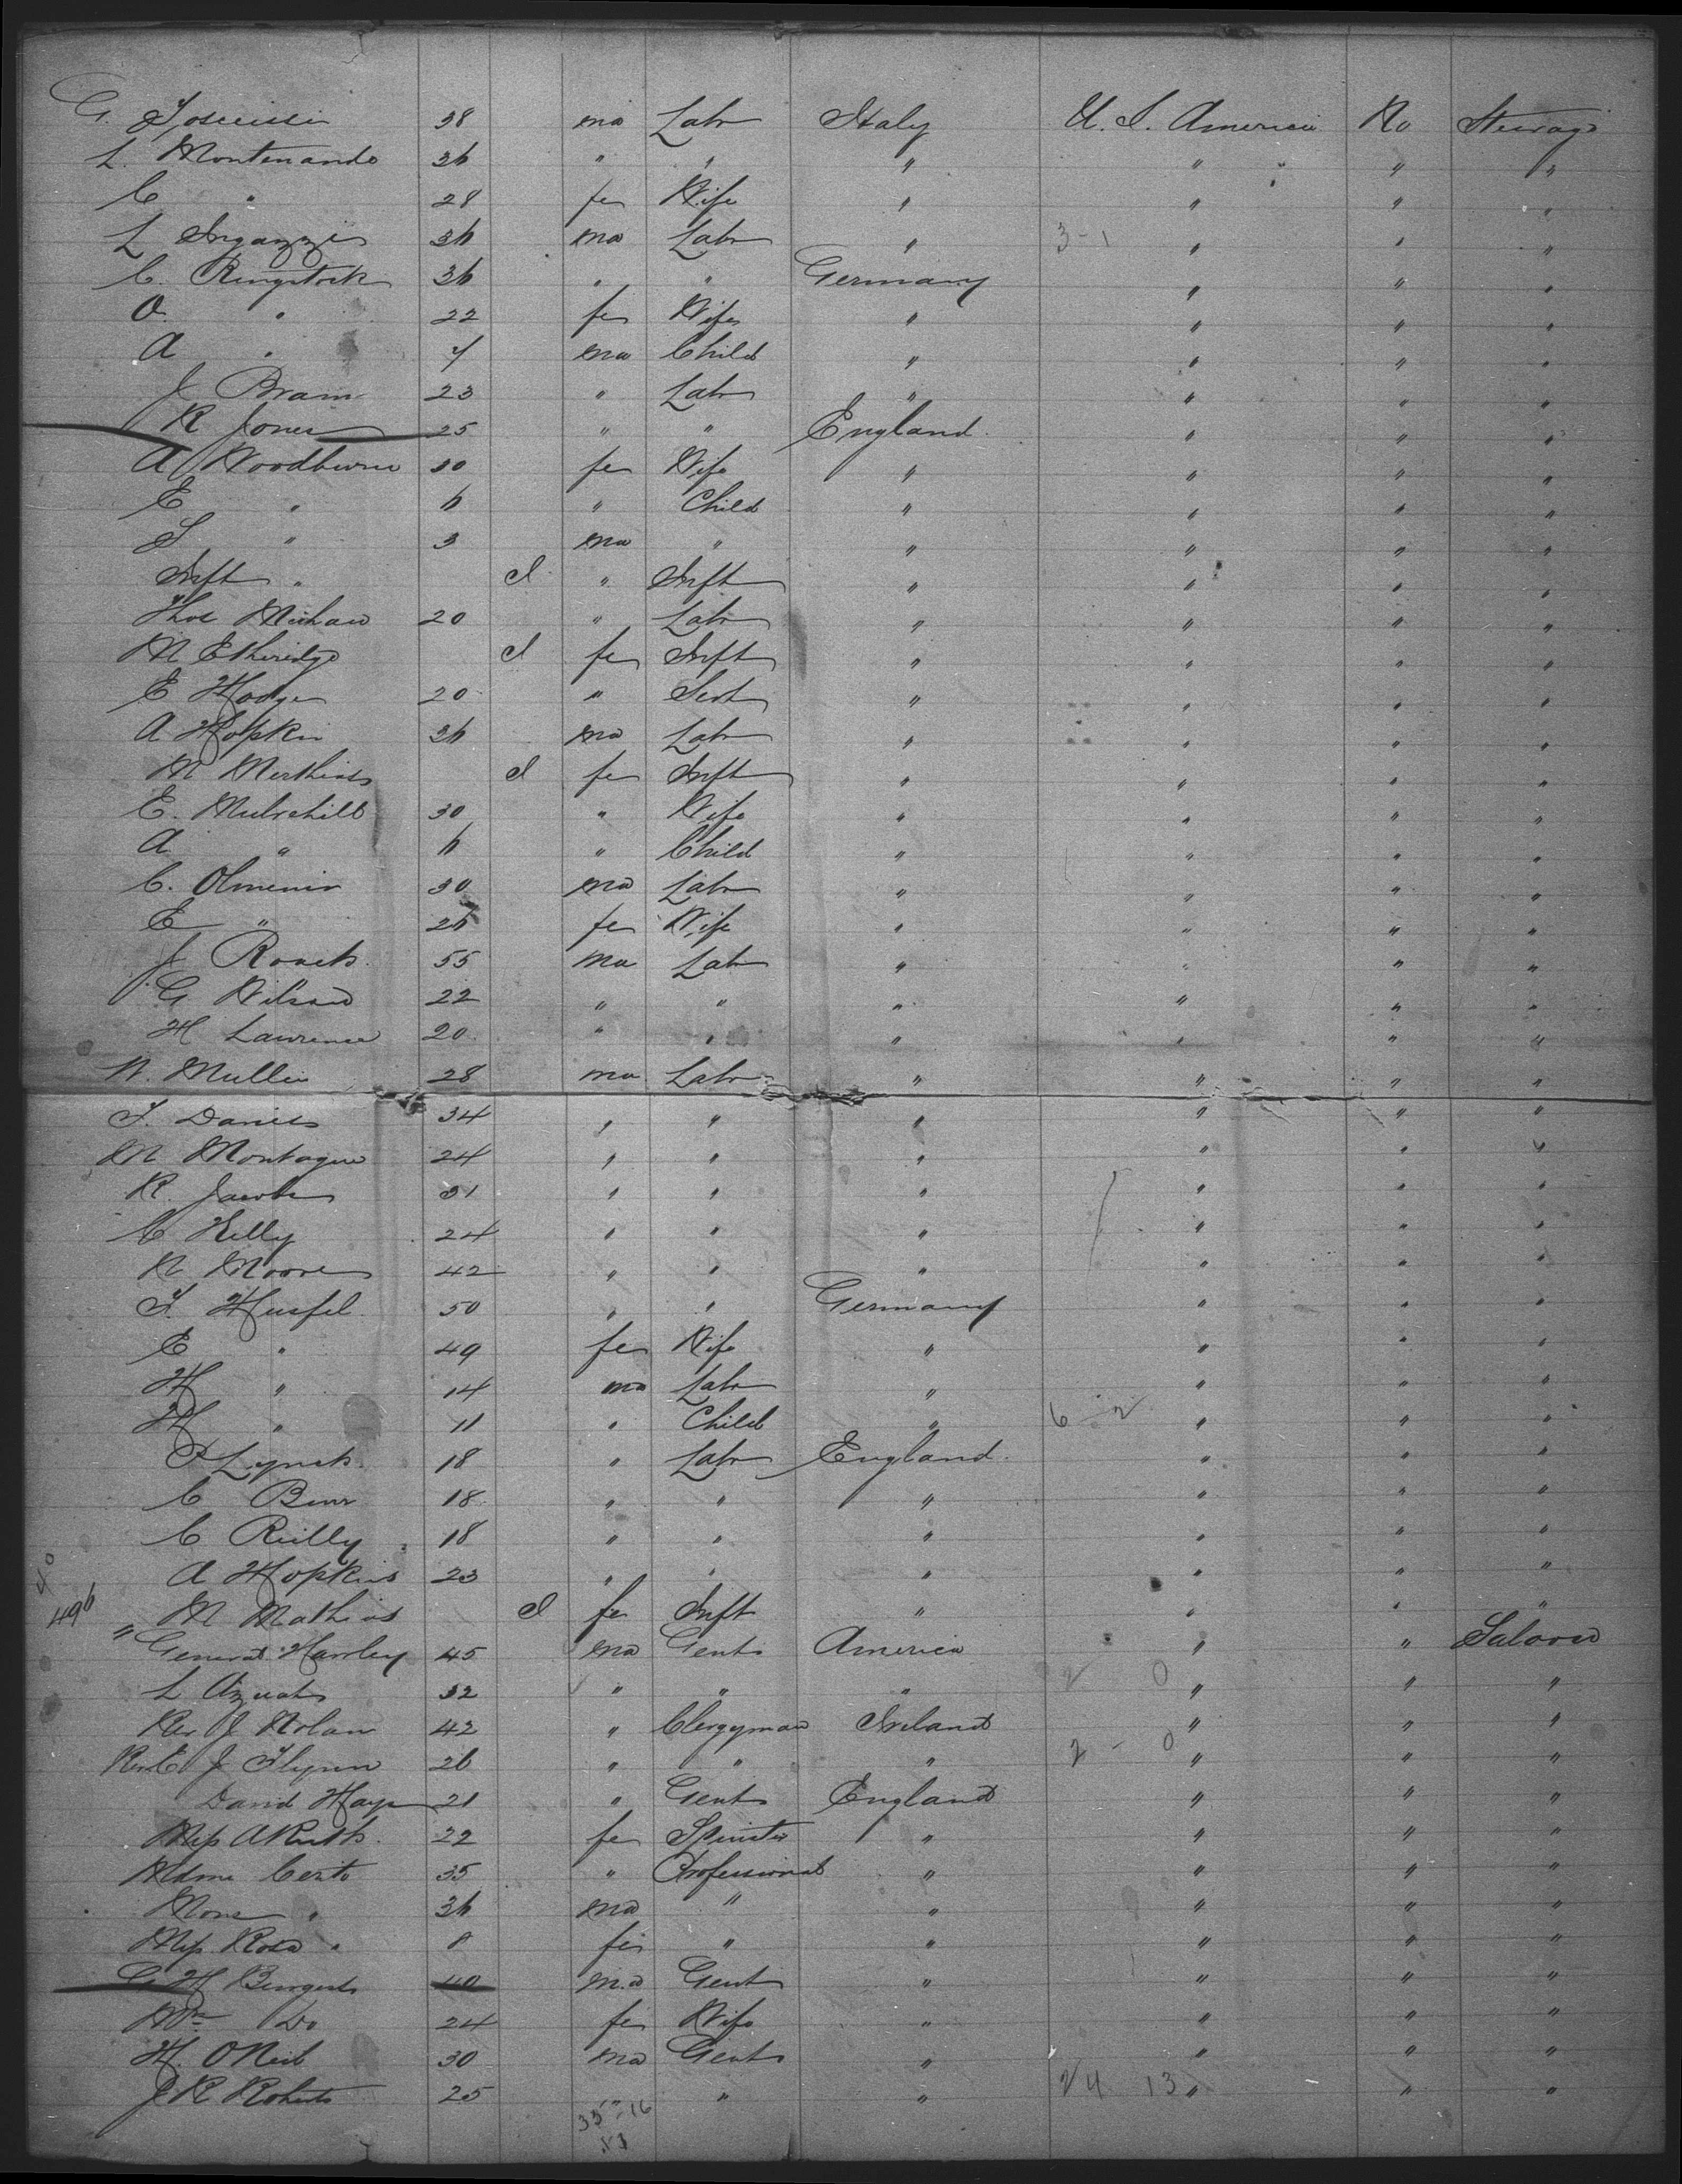 G. 38 ma Labr Italy U. S. America No Steerage
L. Montenando 36 " " " " " "
C " 28 fe Wife " " " "
L 36 ma Labr " 3-1 " " "
C. Ringstock 36 " " Germany " " "
O. " 22 fe Wife " " " "
A " 7 ma Child " " " "
J Bram 23 " Labr " " " "
R Jones 25 " " England " " "
A Woodburne 30 fe Wife " " " "
E " 6 " Child " " " "
S " 3 ma " " " " "
Inft " " Inft " " " "
Thos 20 " Labr " " " "
M Etheridge fe Inft " " " "
E Hodge 20 " Servt " " " "
A Hopkin 36 ma Labr " " " "
M fe Inft " " " "
E. 30 " Wife " " " "
A " 6 " Child " " " "
C. 30 ma Labr " " " "
E " 26 fe Wife " " " "
J Roach 55 ma Labr " " " "
G Wilson 22 " " " " " "
H Lawrence 20 " " " " " "
W. Mullin 28 ma Labr " " " "
T. Davies 34 " " " " " "
M Montague 24 " " " " " "
R. Jacobs 31 " " " " " "
C Kelly 24 " " " " " "
W Moore 42 " " " " " "
F. 50 " " Germany " " "
E " 49 fe Wife " " " "
H " 14 ma Labr " " " "
H " 11 " Child " 6 - 2 " " "
P Lynch 18 " Labr England " " "
C Burr 18 " " " " " "
C Reilly 18 " " " " " "
A Hopkins 23 " " " " " "
496 " M Mathias fe Inft " " " "
General Hawley 45 ma Gent America " " Saloon
L 32 " " " 2 0 " " "
Rev J Nolan 42 " Clergyman Ireland " " "
Rev E J Flynn 26 " " " 2 - 0 " " "
David Hays 21 " Gent England " " "
Miss A 22 fe Spinster " " " "
Mdme Cerito 35 " Professional " " " "
Mons " 36 ma " " " " "
Miss Rosa " 8 fe " " " " "
G H 40 ma Gent " " " "
Mrs Do 24 fe Wife " " " "
H. ONeil 30 ma Gent " " " "
J R Roberts 25 " " " 24 13 " " "